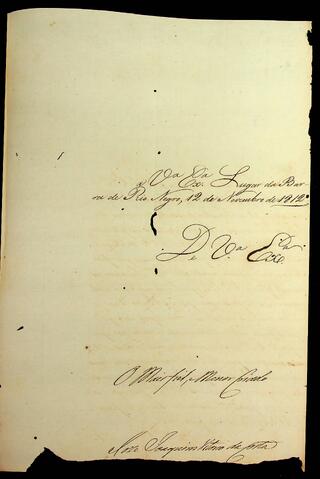 a Va Exa. Lugar da Bar
ra de Rio Negro, 12 de Novembro de 1912
De Va. Exa.
O Mais fiel, e Menor Criado
Joze Joaquim Victorio da Costa